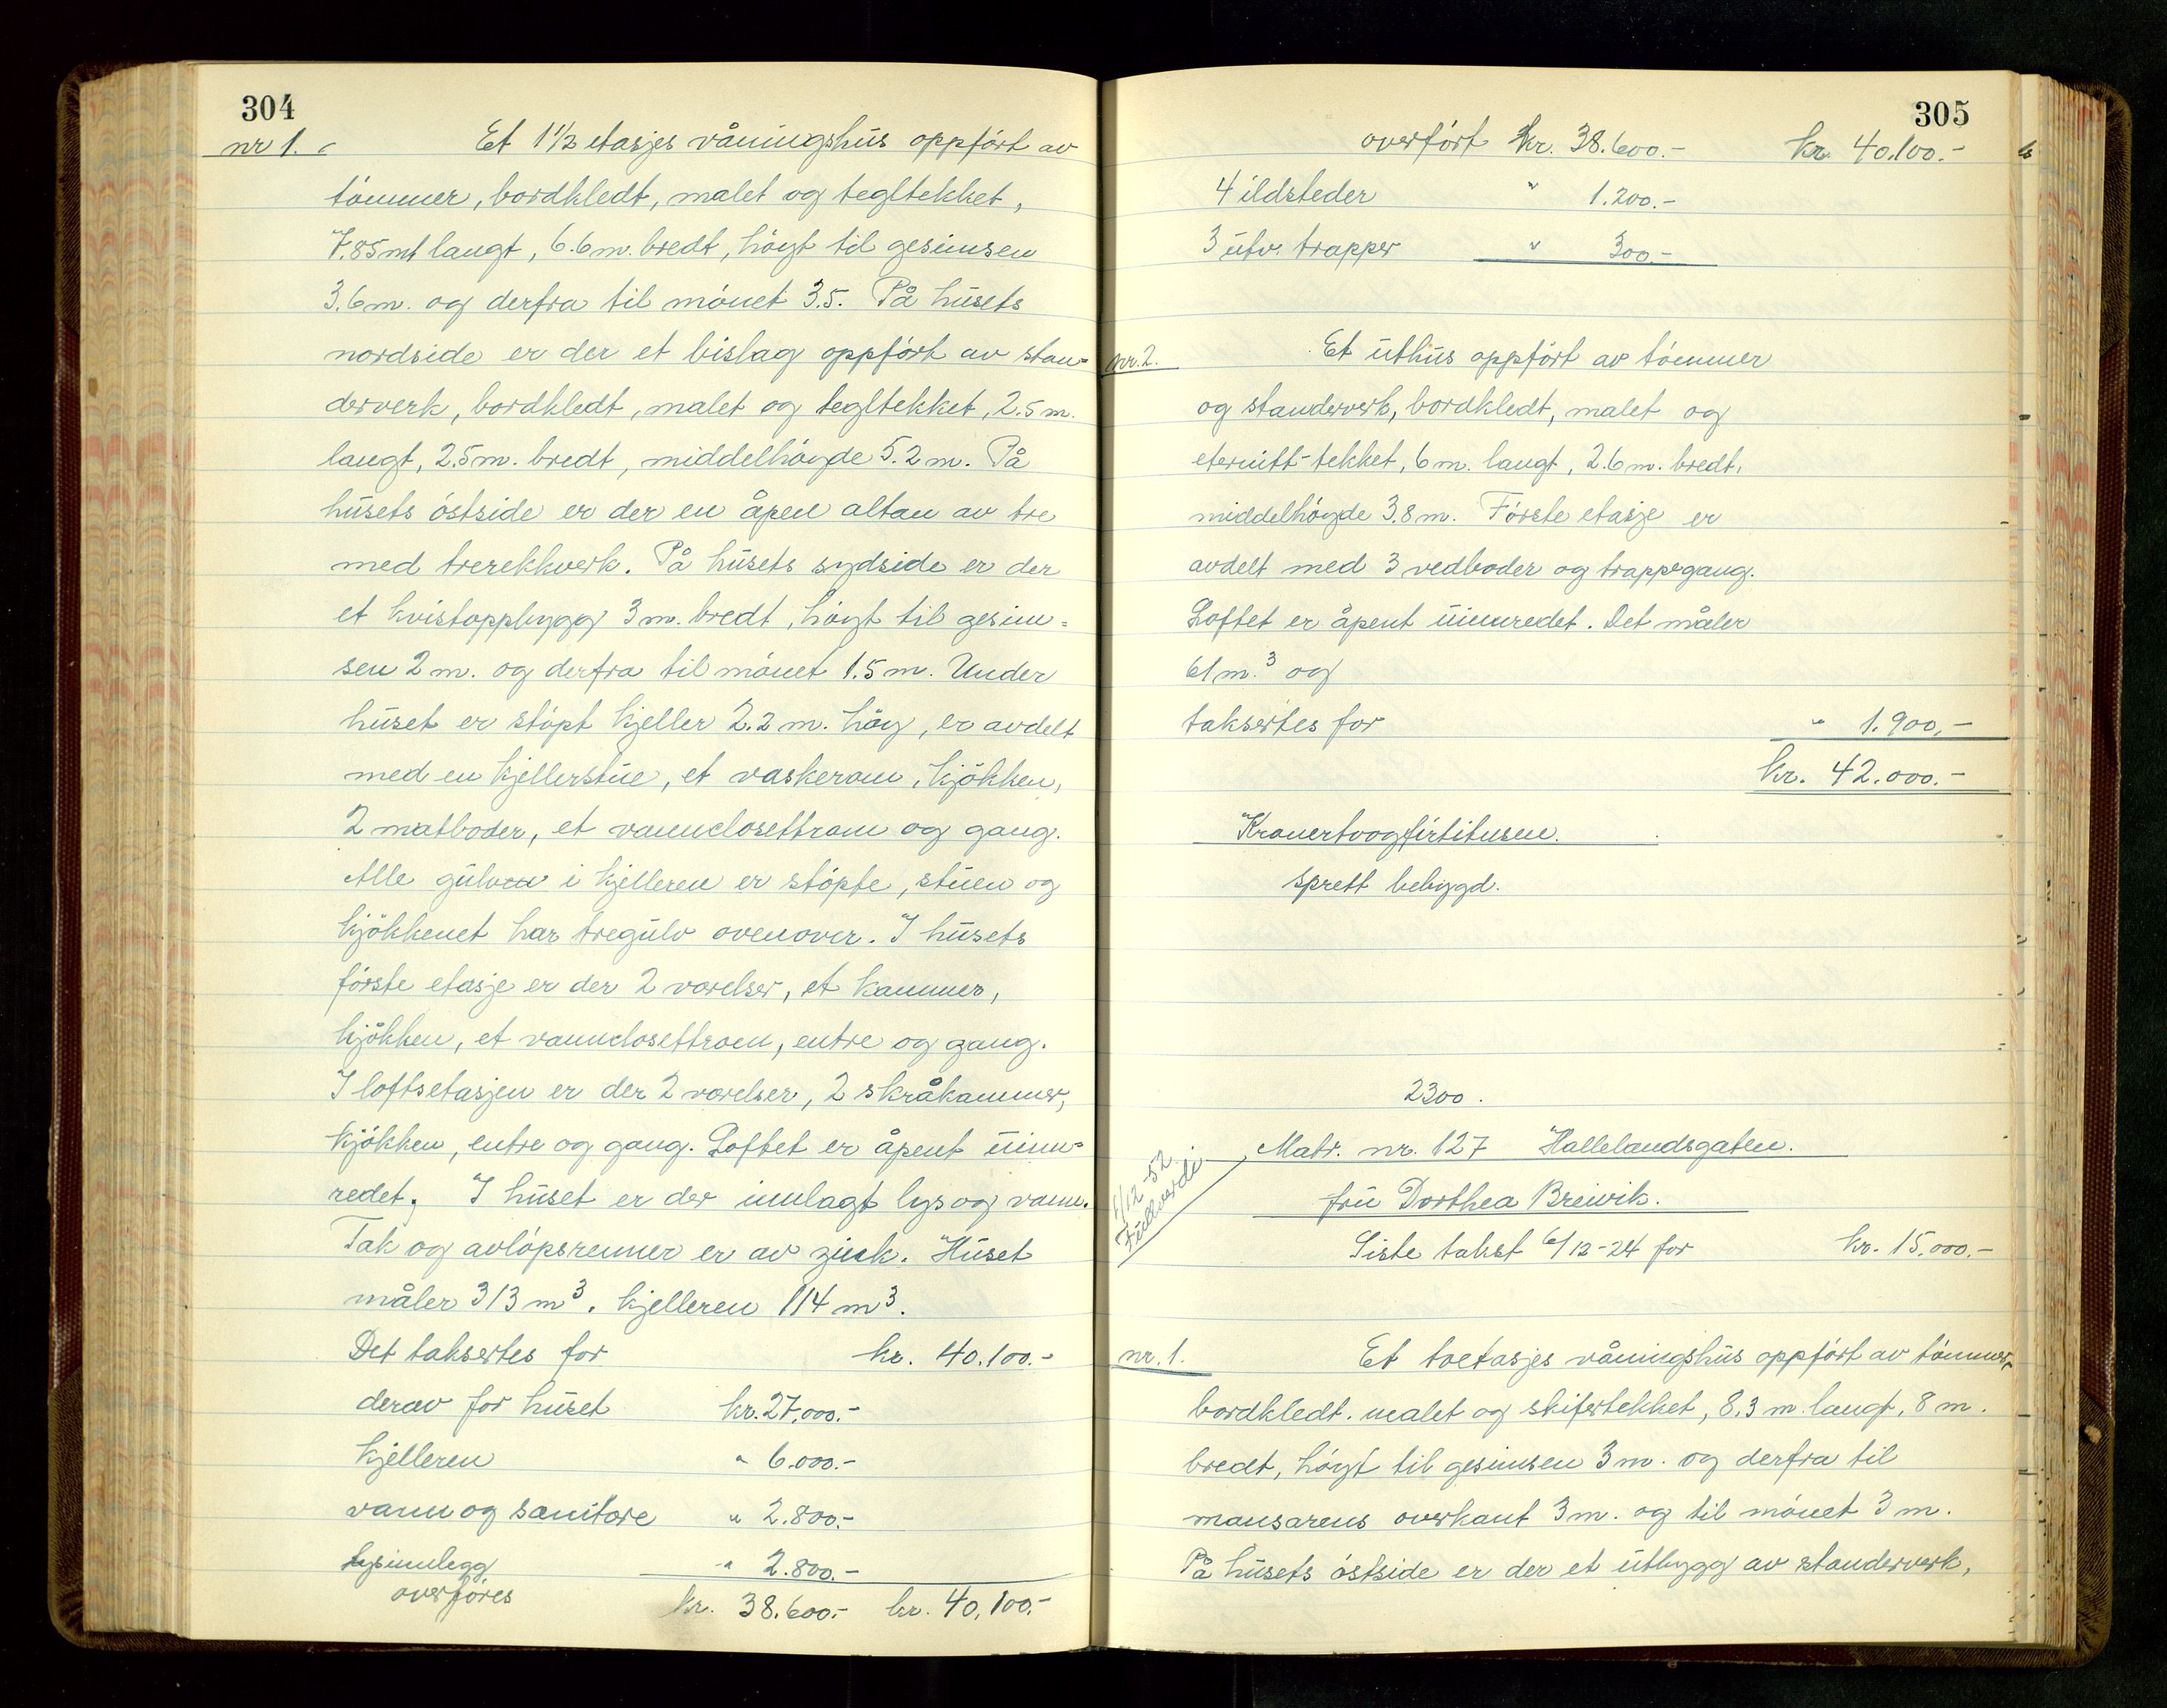 304
nr 1.
Et 1 1/2 etasjes våningshus oppfört av
tömmer, bordkledt, malet og tegltekket,
7.85 mt langt, 6.6 m. bredt, höyt til gesimsen
3.6 m. og derfra til mönet 3.5. På husets
nordside er der et bislag oppfört av stan=
derverk, bordkledt, malet og tegltekket, 2.5 m.
langt, 2.5 m. bredt, middelhöyde 5.2 m. På
husets östside er der en åpen altan av tre
med trerekkverk. På husets sydside er der
et kvistoppbygg 3 m. bredt, höyt til gesim=
sen 2 m. og derfra til mönet 1.5 m. Under
huset er stöpt kjeller 2.2 m. höy, er avdelt
med en kjellerstue, et vaskerom, kjökken,
2 matboder, et vannclosettrom og gang.
Alle gulv i kjelleren er stöpte, stuen og
kjökkenet har tregulv ovenover. I husets
förste etasje er der 2 værelser, et kammer,
kjökken, et vannclosettrom, entre og gang.
I loftsetasjen er der 2 værelser, 2 skråkammer,
kjökken, entre og gang. Loftet er åpent uinn=
redet. I huset er der innlagt lys og vann.
Tak og avlöpsrenner er av zink. Huset
måler 313 m³. kjelleren 114 m³.
Det taksertes for kr. 40.100.-
derav for huset kr. 27.000.-
kjelleren " 6.000.-
vann og sanitære " 2.800.-
lysinnlegg " 2.800.-
overföres kr. 38.600.- kr. 40.100.-
305
overfört kr. 38.600.- kr. 40.100.-
4 ildsteder " 1.200.-
3 utv. trapper " 300.-
nr. 2.
Et uthus oppfört av tömmer
og standerverk, bordkledt, malet og
eternitt-tekket, 6 m. langt, 2.6 m. bredt,
middelhöyde 3.8 m. Förste etasje er
avdelt med 3 vedboder og trappegang.
Loftet er åpent uinnredet. Det måler
61 m.³ og
taksertes for " 1.900.-
kr. 42.000.-
Kronertoogfirtitusen.
Sprett bebygd.
2300.
1/12-52
Fullverdi
Matr. nr. 127 Hallelandsgaten.
fru Dorthea Breivik.
Siste takst 6/12-24 for kr. 15.000.-
nr. 1.
Et toetasjes våningshus oppfört av tömmer,
bordkledt. malet og skifertekket, 8.3 m. langt, 8 m.
bredt, höyt til gesimsen 3 m. og derfra til
mansarens overkant 3 m. og til mönet 3 m.
På husets östside er der et utbygg av standerverk,